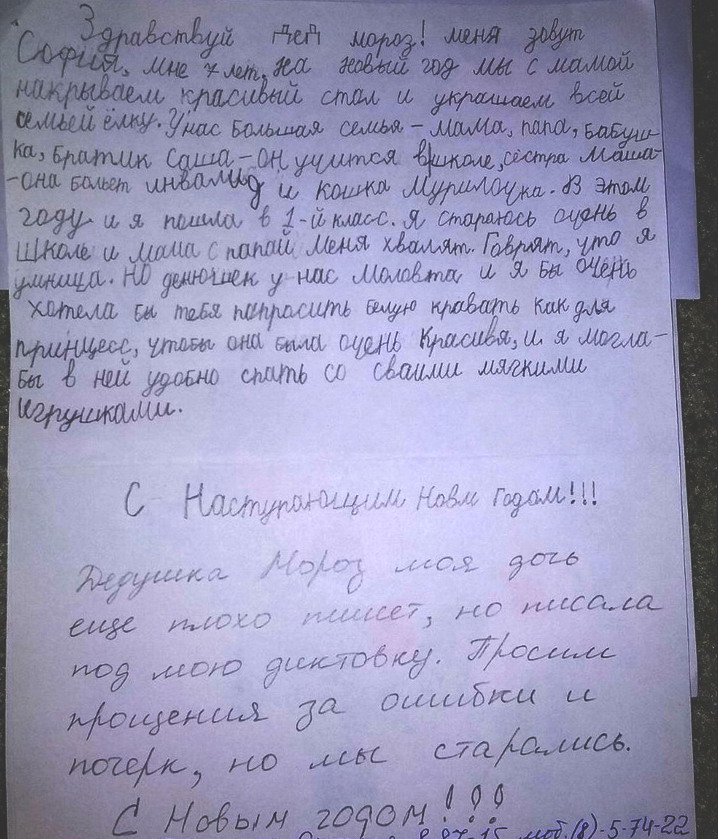 Здравствуй дед мороз! меня зовут
София, мне 7 лет, на новый год мы с мамой
накрываем красивый стал и украшаем всей
семьей ёлку. У нас большая семья - мама, папа, бабуш-
ка, братик Саша - он учится в школе, сестра Маша -
- она бальет инвалид и кошка Мурилочка. В этом
году и я пошла в 1-й класс. Я стараюсь очень в
школе и мама с папай меня хвалят. Говрят, что я
умница. Но денюшек у нас маловта и я бы очень
хотела бы тебя папрасить белую кравать как для
принцесс, чтобы она была очень красивя, и я могла-
бы в ней удобно спать со сваими мягкими
игрушками.
С Наступающим Новм годом!!!
Дедушка Мороз моя дочь
еще плохо пишет, но писала
под мою диктовку. Просим
прощения за ошибки и
почерк, но мы старались.
С Новым годом!!!
моб.(8)-5-74-22